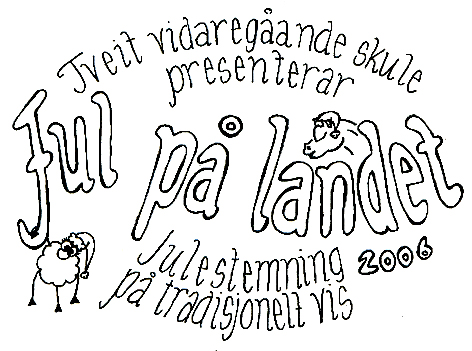 Tveit vidaregåande skule
presenterar
Jul på landet
Julestemning 2006
på tradisjonelt vis